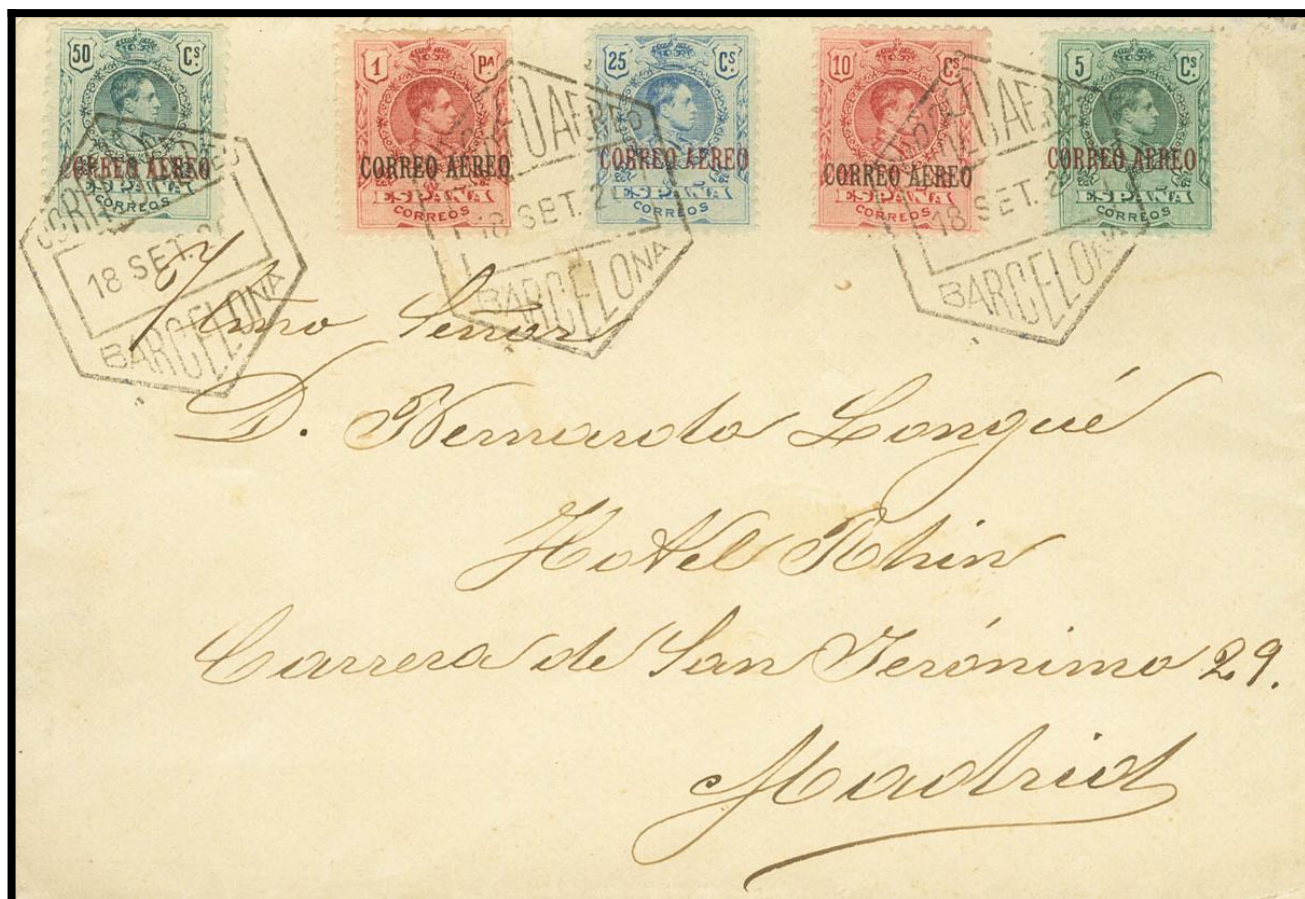 50 Cs
CORREO AEREO
ESPAÑA
CORREOS
1 PA
CORREO AEREO
ESPAÑA
CORREOS
25 Cs
CORREO AEREO
ESPAÑA
CORREOS
10 Cs
CORREO AEREO
ESPAÑA
CORREOS
5 Cs
CORREO AEREO
ESPAÑA
CORREOS
CORREO AEREO
18 SET. 2
BARCELONA
CORREO AEREO
18 SET. 2
BARCELONA
CORREO AEREO
18 SET. 2
BARCELONA
Señor
D. Bernardo Longué
Hotel Rhin
Carrera de San Jerónimo 29.
Madrid